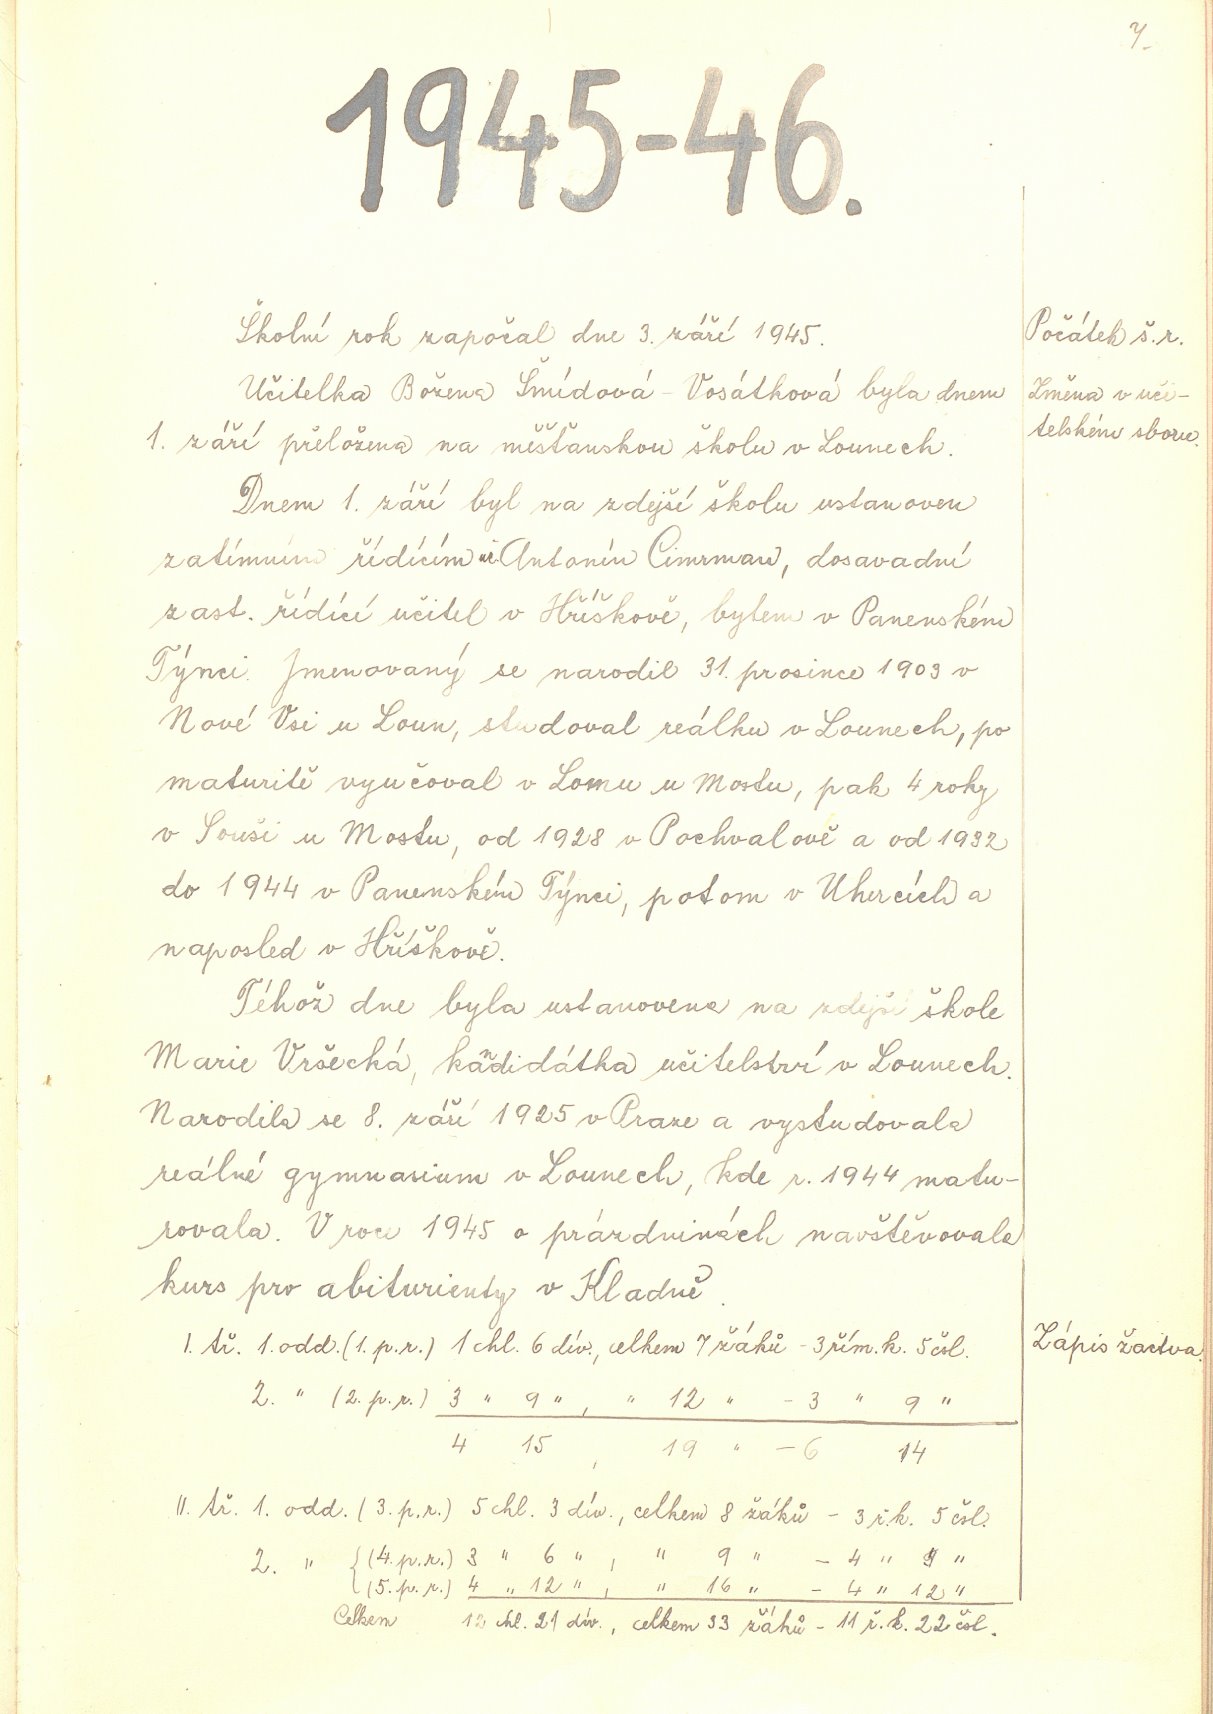 7.
1945-46.
Školní rok započal dne 3. září 1945.
Počátek š. r.
Učitelka Božena Šmídová - Vosátková byla dnem
1. září přeložena na měšťanskou školu v Lounech.
Změna v uči-
telském sboru.
Dnem 1. září byl na zdejší školu ustanoven
zatímním řídícím uč. Antonín Cimrman, dosavadní
zast. řídící učitel v Hříškově, bytem v Panenském
Týnci. Jmenovaný se narodil 31. prosince 1903 v
Nové Vsi u Loun, studoval reálku v Lounech, po
maturitě vyučoval v Lomu u Mostu, pak 4 roky
v Souši u Mostu, od 1928 v Pochvalově a od 1932
do 1944 v Panenském Týnci, potom v Uhercích a
naposled v Hříškově.
Téhož dne byla ustanovena na zdejší škole
Marie Vršecká, kandidátka učitelství v Lounech.
Narodila se 8. září 1925 v Praze a vystudovala
reálné gymnasium v Lounech, kde r. 1944 matu-
rovala. V roce 1945 o prázdninách navštěvovala
kurs pro abiturienty v Kladně.
I. tř. 1. odd. (1. p. r.) 1 chl. 6 dív., celkem 7 žáků - 3 řím. k. 5 čsl.
Zápis žactva.
2. " (2. p. r.) 3 " 9 " , " 12 " - 3 " 9 "
4 15 , 19 " - 6 14
II. tř. 1. odd. (3. p. r.) 5 chl. 3 dív., celkem 8 žáků - 3 ř. k. 5 čsl.
2. " { (4. p. r.) 3 " 6 " , " 9 " - 4 " "
(5. p. r.) 4 " 12 " , " 16 " - 4 " 12 "
Celkem 12 chl. 21 dív., celkem 33 žáků - 11 ř. k. 22 čsl.